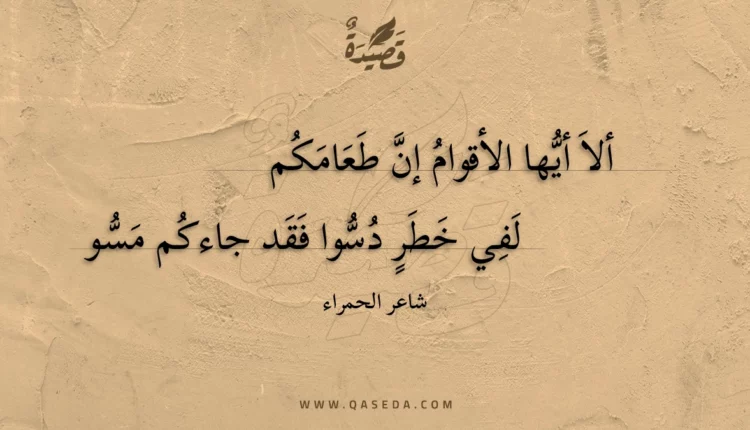 قَصِيْدَةٌ
ألاَ أيُّها الأقوامُ إنَّ طَعَامَكُم
لَفِي خَطَرٍ دُسُّوا فَقَد جاءكُم مَسُّو
شاعر الحمراء
WWW.QASEDA.COM